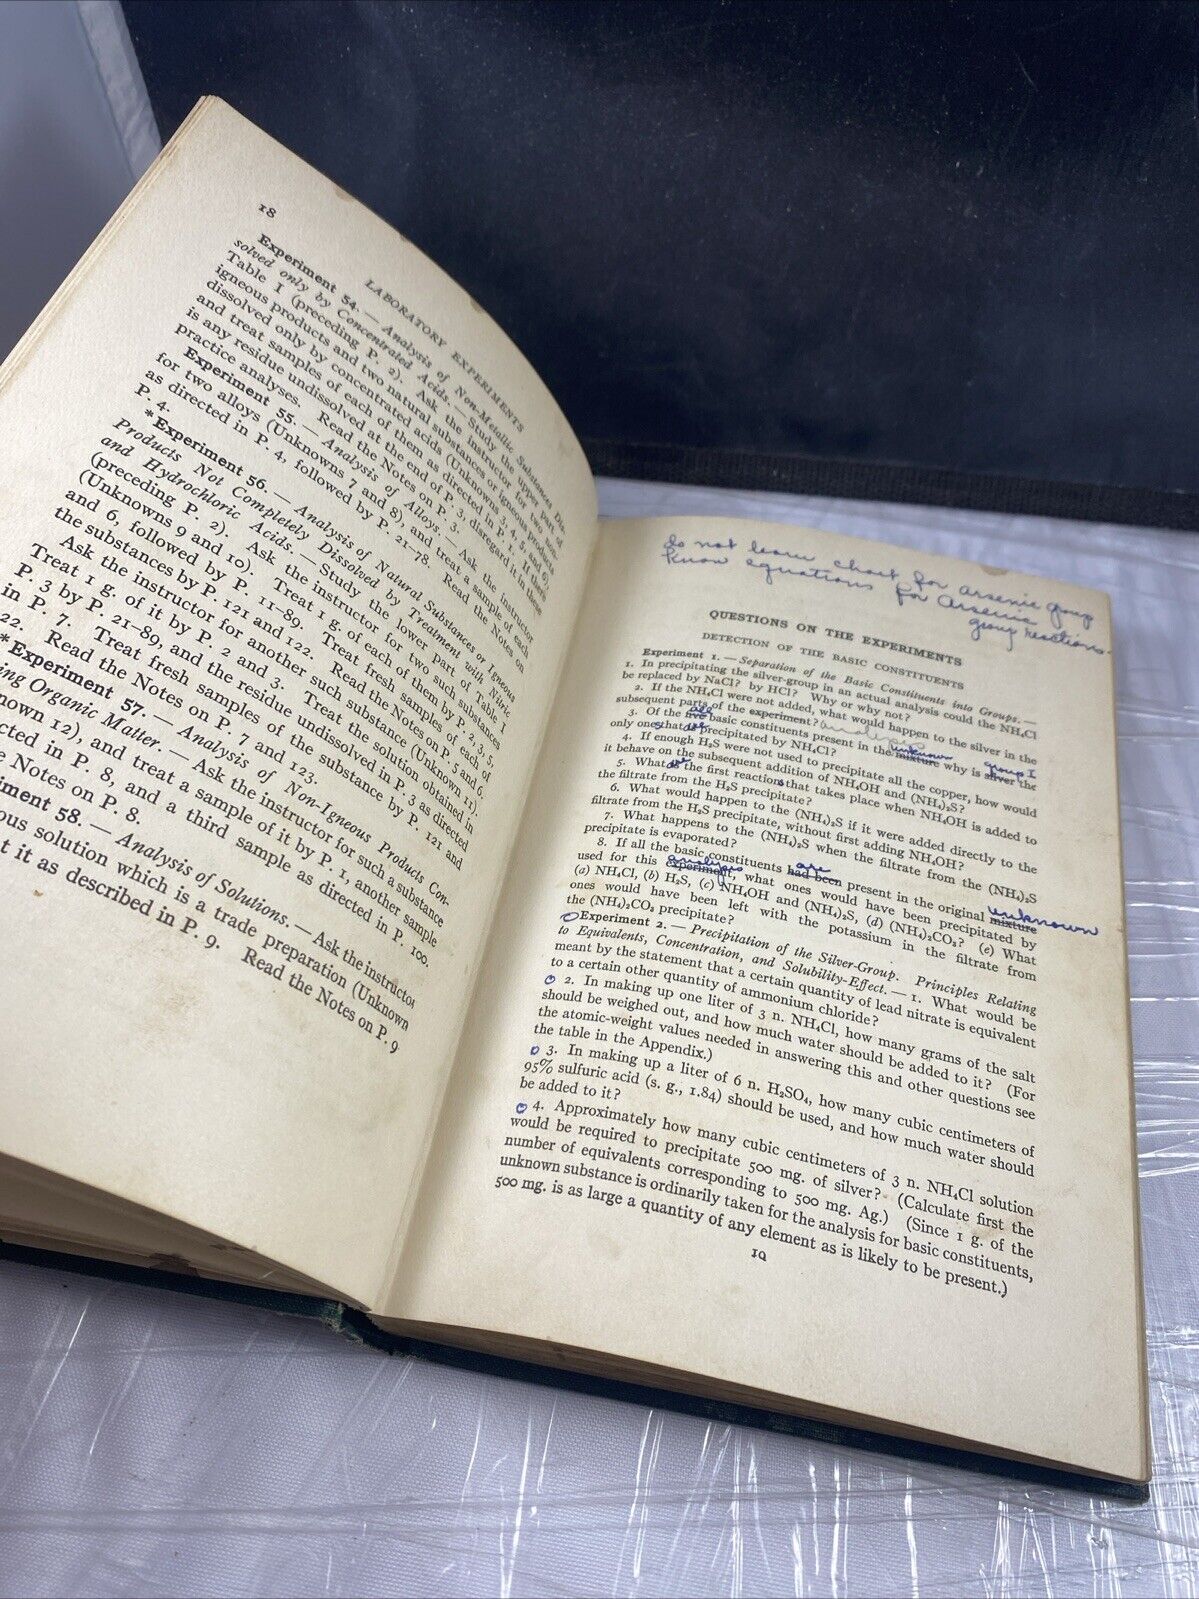 18
LABORATORY EXPERIMENTS
Experiment 54. — Analysis of Non-Metallic Substances Dis-
solved only by Concentrated Acids. — Study the upper part of
Table I (preceding P. 2). Ask the instructor for two non-
igneous products and two natural substances or igneous products
dissolved only by concentrated acids (Unknowns 3, 4, 5, and 6),
and treat samples of each of them as directed in P. 1. If there
is any residue undissolved at the end of P. 3, disregard it in these
practice analyses. Read the Notes on P. 3.
Experiment 55. — Analysis of Alloys. — Ask the instructor
for two alloys (Unknowns 7 and 8), and treat a sample of each
as directed in P. 4, followed by P. 21-78. Read the Notes on
P. 4.
*Experiment 56. — Analysis of Natural Substances or Igneous
Products Not Completely Dissolved by Treatment with Nitric
and Hydrochloric Acids. — Study the lower part of Table I
(preceding P. 2). Ask the instructor for two such substances
(Unknowns 9 and 10). Treat 1 g. of each of them by P. 2, 3, 5,
and 6, followed by P. 11-89. Treat fresh samples of each of
the substances by P. 121 and 122. Read the Notes on P. 5 and 6.
Ask the instructor for another such substance (Unknown 11).
Treat 1 g. of it by P. 2 and 3. Treat the solution obtained in
P. 3 by P. 21-89, and the residue undissolved in P. 3 as directed
in P. 7. Treat fresh samples of the substance by P. 121 and
22. Read the Notes on P. 7 and 123.
*Experiment 57. — Analysis of Non-Igneous Products Con-
ing Organic Matter. — Ask the instructor for such a substance
nown 12), and treat a sample of it by P. 1, another sample
cted in P. 8, and a third sample as directed in P. 100.
e Notes on P. 8.
ment 58. — Analysis of Solutions. — Ask the instructor
ous solution which is a trade preparation (Unknown
t it as described in P. 9. Read the Notes on P. 9
do not learn chart for arsenic group
Know equations for Arsenic
group reactions.
QUESTIONS ON THE EXPERIMENTS
DETECTION OF THE BASIC CONSTITUENTS
Experiment 1. — Separation of the Basic Constituents into Groups. —
1. In precipitating the silver-group in an actual analysis could the NH₄Cl
be replaced by NaCl? by HCl? Why or why not?
2. If the NH₄Cl were not added, what would happen to the silver in the
subsequent parts of the experiment?
all
3. Of the five basic constituents present in the mixture why is silver the
unknown group I
only one that is precipitated by NH₄Cl?
s are
4. If enough H₂S were not used to precipitate all the copper, how would
it behave on the subsequent addition of NH₄OH and (NH₄)₂S?
5. What is the first reaction that takes place when NH₄OH is added to
are s
the filtrate from the H₂S precipitate?
6. What would happen to the (NH₄)₂S if it were added directly to the
filtrate from the H₂S precipitate, without first adding NH₄OH?
7. What happens to the (NH₄)₂S when the filtrate from the (NH₄)₂S
precipitate is evaporated?
are
8. If all the basic constituents had been present in the original mixture
analysis unknown
used for this experiment, what ones would have been precipitated by
(a) NH₄Cl, (b) H₂S, (c) NH₄OH and (NH₄)₂S, (d) (NH₄)₂CO₃? (e) What
ones would have been left with the potassium in the filtrate from
the (NH₄)₂CO₃ precipitate?
Experiment 2. — Precipitation of the Silver-Group. Principles Relating
to Equivalents, Concentration, and Solubility-Effect. — 1. What would be
meant by the statement that a certain quantity of lead nitrate is equivalent
to a certain other quantity of ammonium chloride?
2. In making up one liter of 3 n. NH₄Cl, how many grams of the salt
should be weighed out, and how much water should be added to it? (For
the atomic-weight values needed in answering this and other questions see
the table in the Appendix.)
3. In making up a liter of 6 n. H₂SO₄, how many cubic centimeters of
95% sulfuric acid (s. g., 1.84) should be used, and how much water should
be added to it?
4. Approximately how many cubic centimeters of 3 n. NH₄Cl solution
would be required to precipitate 500 mg. of silver? (Calculate first the
number of equivalents corresponding to 500 mg. Ag.) (Since 1 g. of the
unknown substance is ordinarily taken for the analysis for basic constituents,
500 mg. is as large a quantity of any element as is likely to be present.)
19